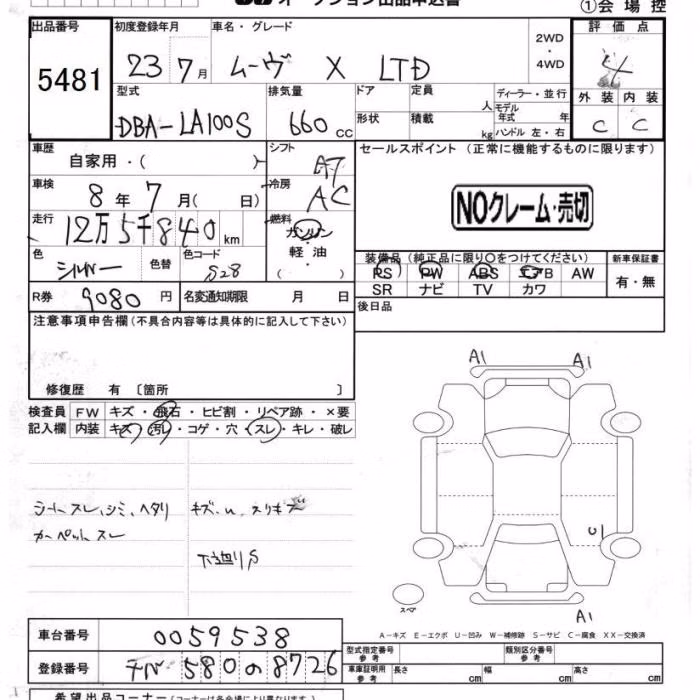 オークション出品申込書 ①会場控
出品番号 初度登録年月 車名・グレード 評価点
5481 23 7月 ムーヴ X LTD 2WD ・ 4WD 4
型式 排気量 ドア 定員 人 ディーラー・並行 外装 内装
DBA-LA100S 660cc 形状 積載 kg モデル年式 年 ハンドル 左・右 C C
車歴 自家用・( ) シフト AT セールスポイント (正常に機能するものに限ります)
車検 8年 7月( 日) 冷房 AC
NOクレーム・売切
走行 12万5千840km 燃料 ガソリン 軽油 ( )
色 シルバー 色替 色コード S28
装備品 (純正品に限り○をつけてください) 新車保証書
PS PW ABS エアB AW 有・無
SR ナビ TV カワ
R券 9080円 名変通知期限 月 日
後日品
注意事項申告欄(不具合内容等は具体的に記入して下さい)
修復歴 有 〔箇所 〕
検査員 FW キズ・飛石・ヒビ割・リペア跡・×要
記入欄 内装 キズ・汚レ・コゲ・穴・スレ・キレ・破レ
A1 A1
シートスレ、シミ、ヘタリ キズ、U、スリキズ
カーペットスレ
下廻りS
C1
スペア
A1
A-キズ E-エクボ U-凹み W-補修跡 S-サビ C-腐食 XX-交換済
車台番号 0059538
型式指定番号 参考 類別区分番号 参考
登録番号 580の8726
車庫証明用 参考 長さ cm 幅 cm 高さ cm
希望出品コーナー(コーナーは各会場により異なります)